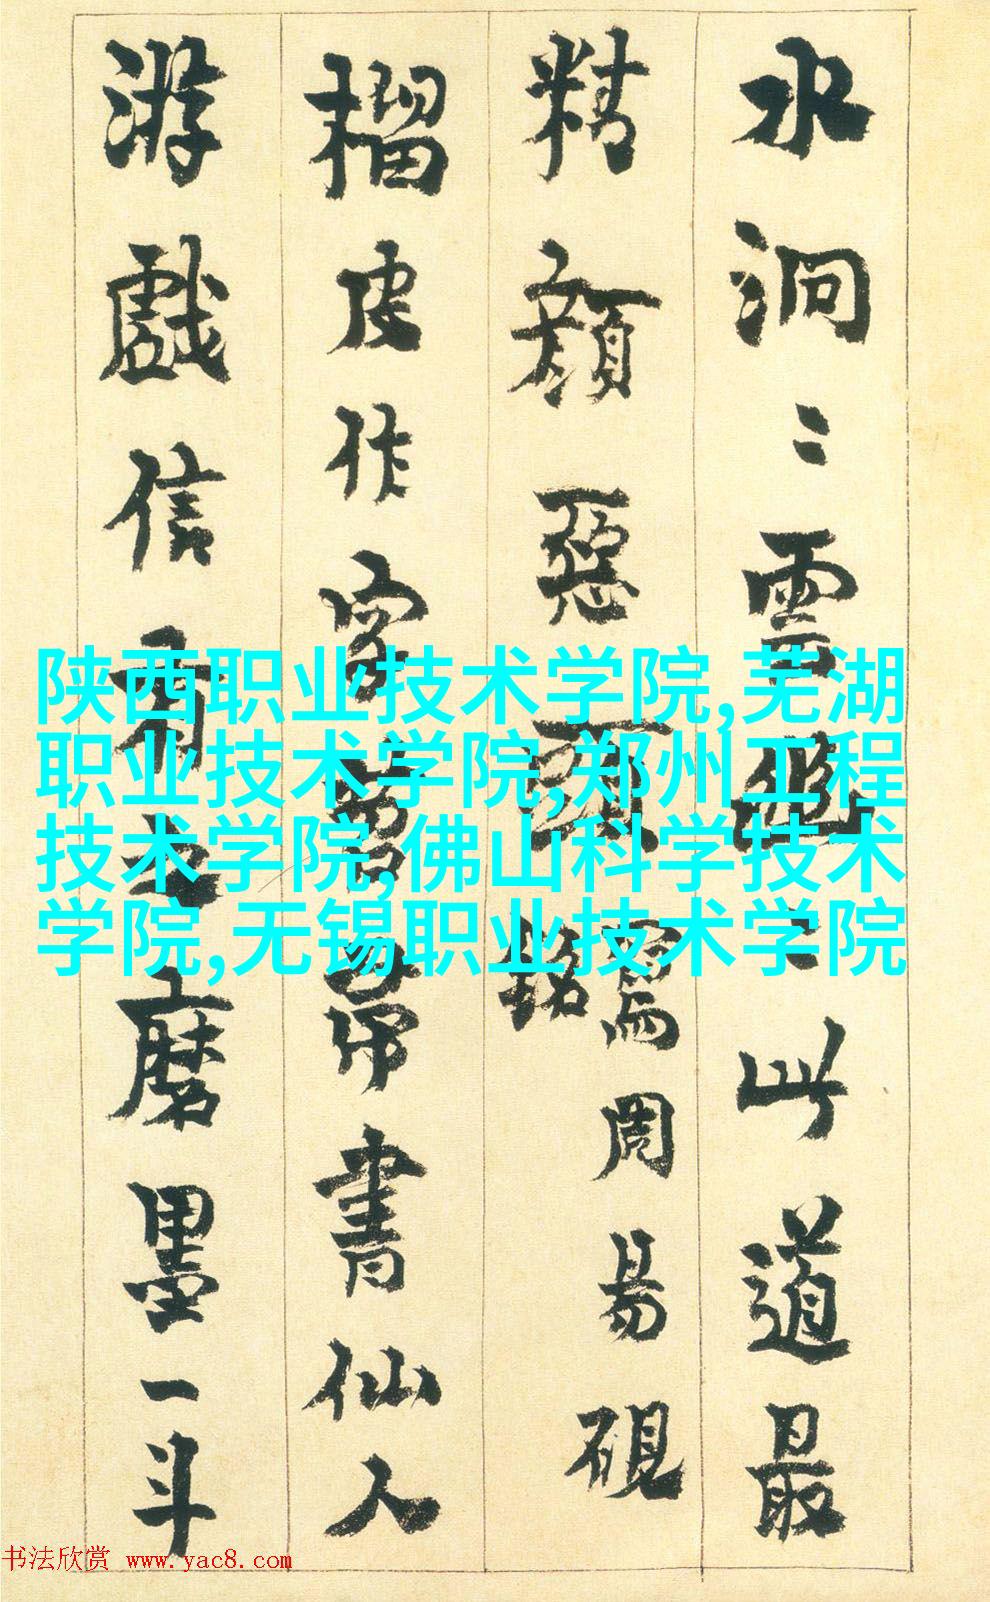 水洞〻雲幽〻此道最
精顏惡頭
寫周易硯
銘
榴皮作字苕帚書仙人
游戲信有之磨墨一斗
陕西职业技术学院,芜湖
职业技术学院,郑州工程
技术学院,佛山科学技术
学院,无锡职业技术学院
书法欣赏 www.yac8.com